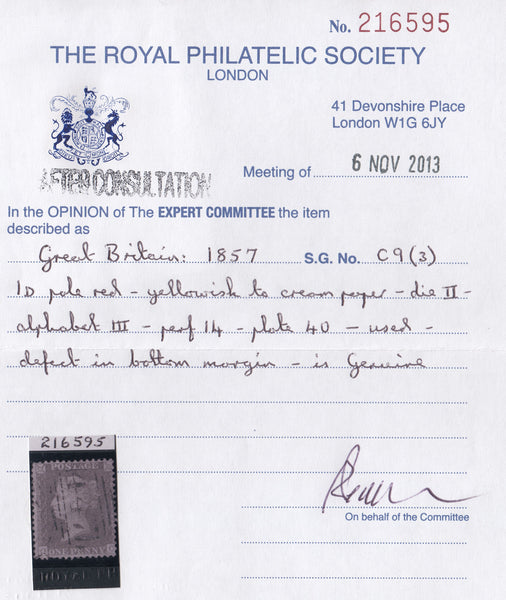 No. 216595
THE ROYAL PHILATELIC SOCIETY
LONDON
41 Devonshire Place
London W1G 6JY
AFTER CONSULTATION
Meeting of 6 NOV 2013
In the OPINION of The EXPERT COMMITTEE the item
described as
Great Britain: 1857 S.G. No. C9(3)
1D pale red - yellowish to cream paper - die II -
alphabet III - perf 14 - plate 40 - used -
defect in bottom margin - is Genuine
216595
POSTAGE
ONE PENNY
On behalf of the Committee